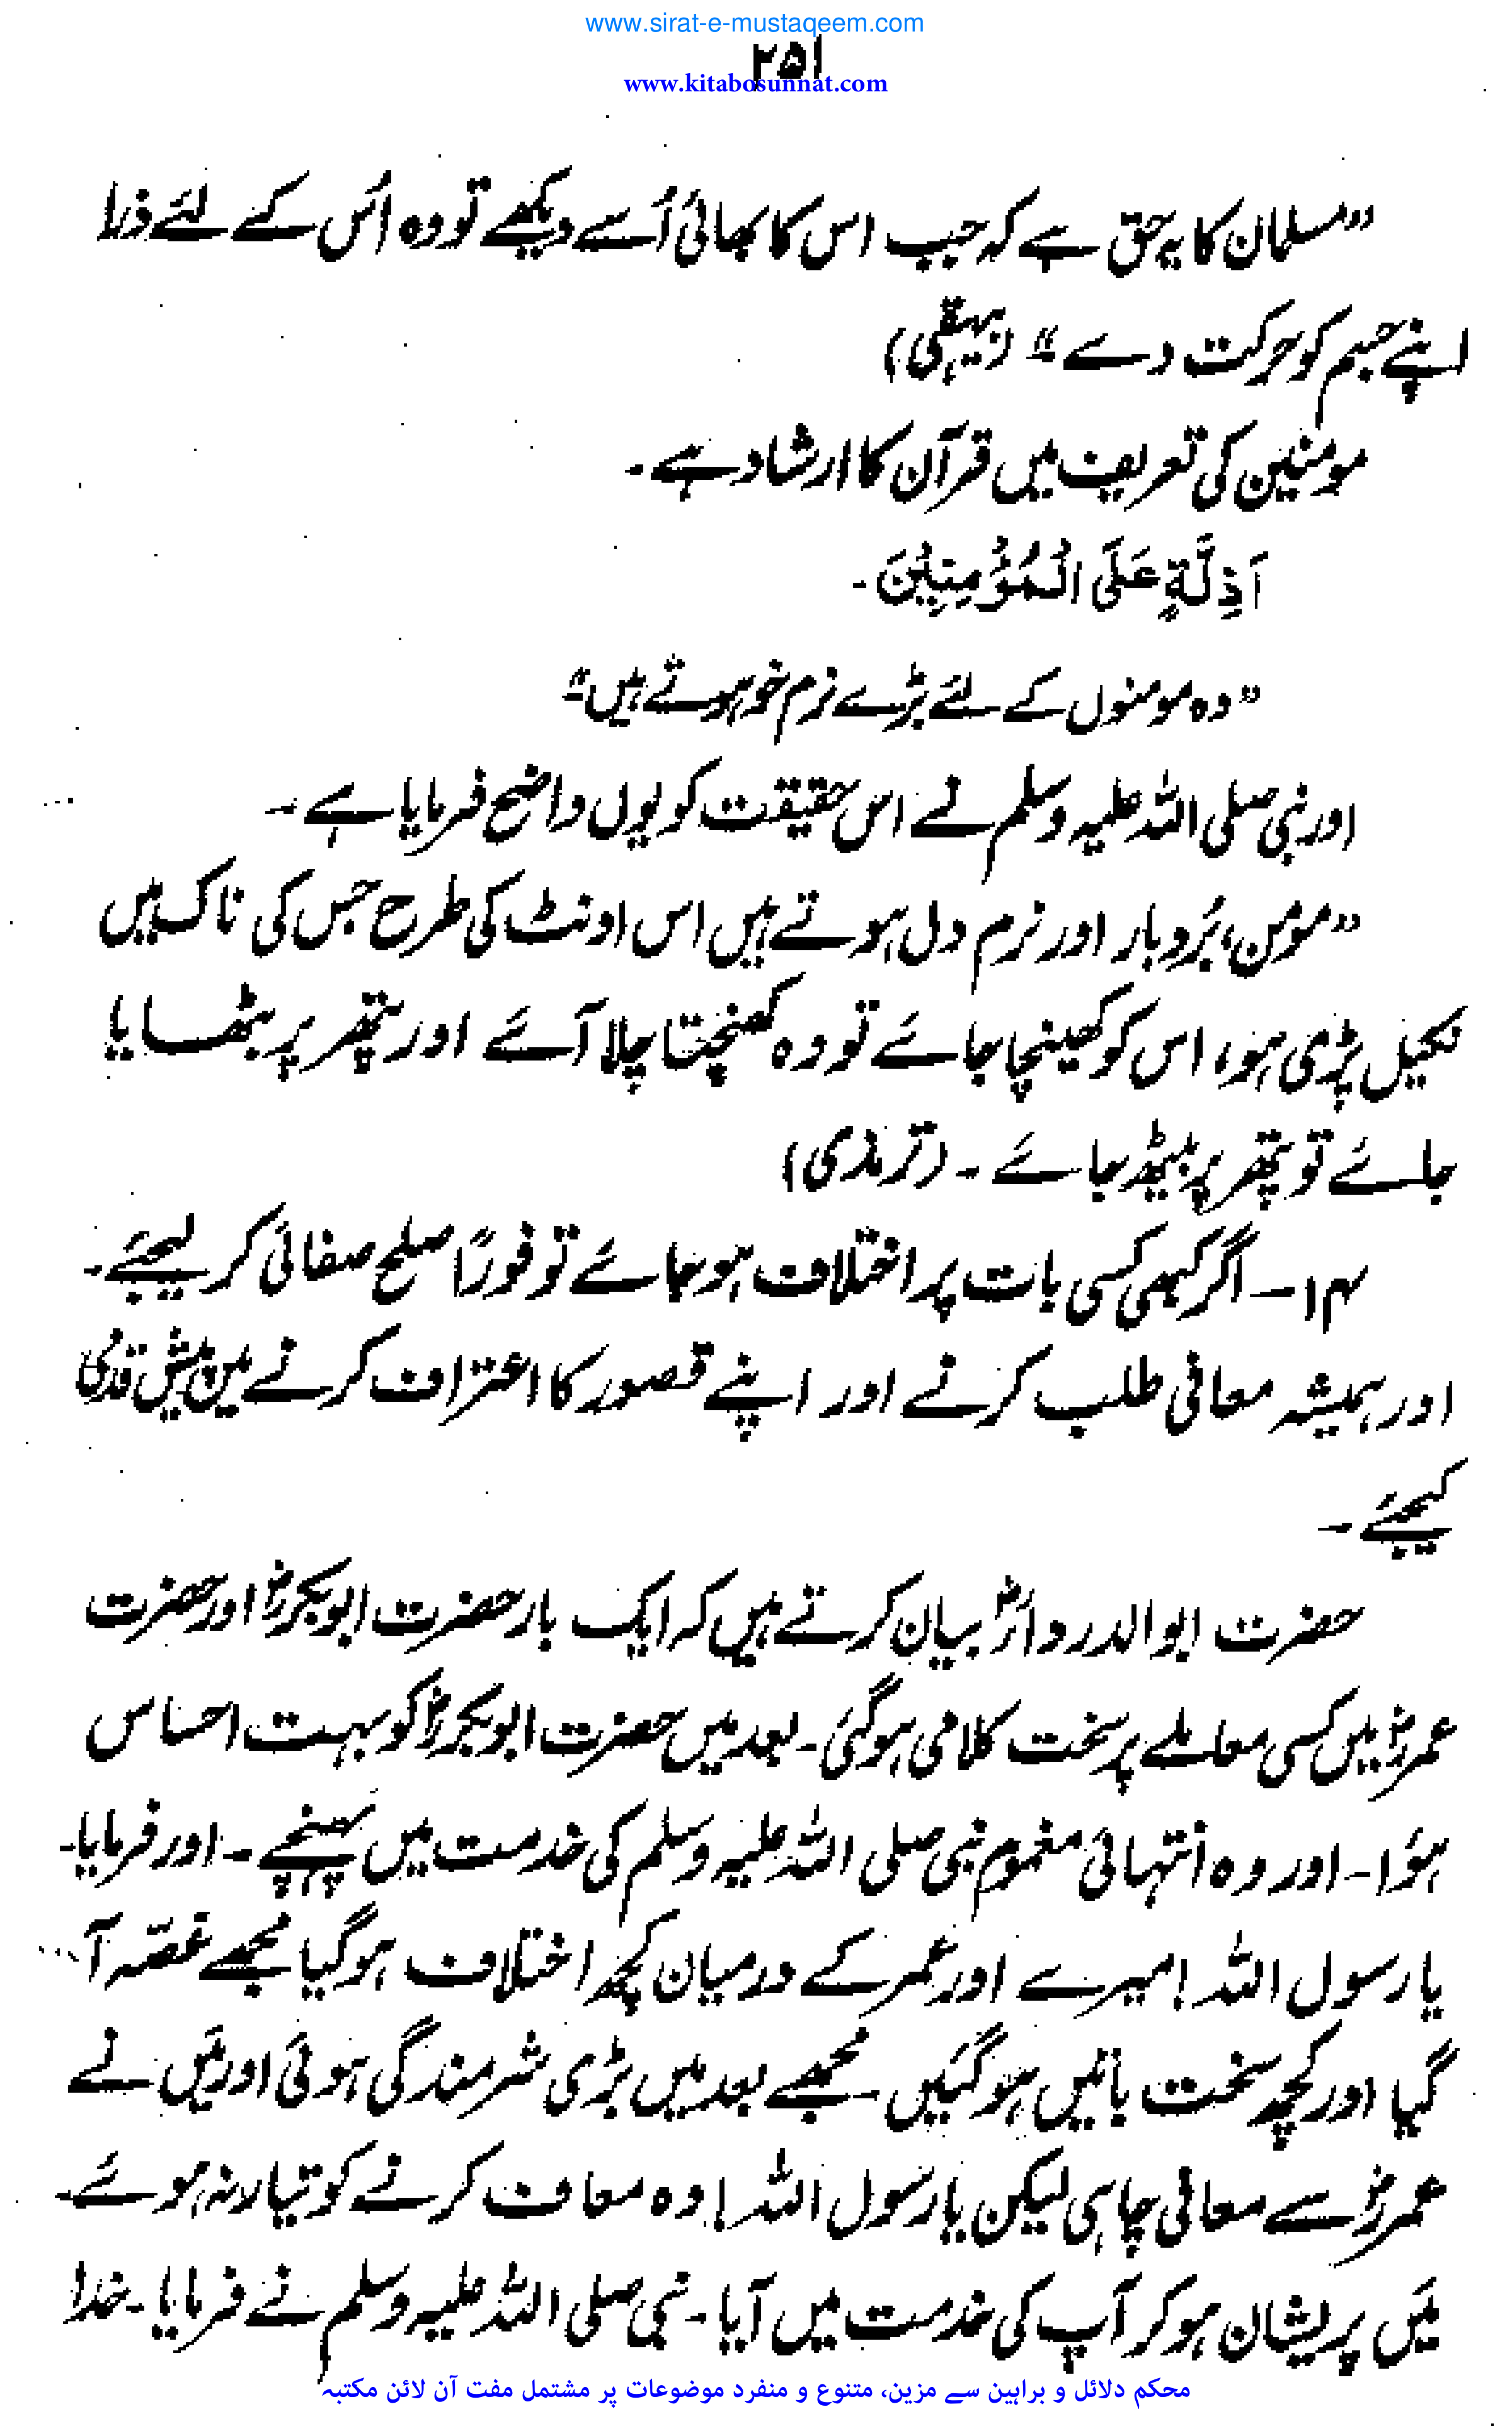 www.sirat-e-mustaqeem.com
۲۵۱
www.kitabosunnat.com
”مسلمان کا یہ حق ہے کہ جب اس کا بھائی اُسے دیکھے تو وہ اُس کے لئے ذرا
اپنے جسم کو حرکت دے“ (بیہقی)
مومنین کی تعریف میں قرآن کا ارشاد ہے۔
اَذِلَّةٍ عَلَى الْمُؤْمِنِيْنَ۔
”وہ مومنوں کے لئے بڑے نرم خو ہوتے ہیں“
اور نبی صلی اللہ علیہ وسلم نے اس حقیقت کو یوں واضح فرمایا ہے۔
”مؤمن، بُردبار اور نرم دل ہوتے ہیں اس اونٹ کی طرح جس کی ناک میں
نکیل پڑی ہو، اس کو کھینچا جائے تو وہ کھنچتا چلا آئے اور پتھر پر بٹھایا
جائے تو پتھر پر بیٹھ جائے۔ (ترمذی)
۱۴۔ اگر کبھی کسی بات پر اختلاف ہو جائے تو فوراً صلح صفائی کر لیجئے۔
اور ہمیشہ معافی طلب کرنے اور اپنے قصور کا اعتراف کرنے میں پیش قدمی
کیجئے۔
حضرت ابوالدرداءؓ بیان کرتے ہیں کہ ایک بار حضرت ابوبکرؓ اور حضرت
عمرؓ میں کسی معاملے پر سخت کلامی ہو گئی۔ بعد میں حضرت ابوبکرؓ کو بہت احساس
ہؤا۔ اور وہ انتہائی مغموم نبی صلی اللہ علیہ وسلم کی خدمت میں پہنچے۔ اور فرمایا۔
یا رسول اللہ! میرے اور عمر کے درمیان کچھ اختلاف ہو گیا مجھے غصّہ آ
گیا اور کچھ سخت باتیں ہو گئیں۔ مجھے بعد میں بڑی شرمندگی ہوئی اور میَں نے
عمرؓ سے معافی چاہی لیکن یا رسول اللہ! وہ معاف کرنے کو تیار نہ ہوئے۔
میَں پریشان ہو کر آپ کی خدمت میں آیا۔ نبی صلی اللہ علیہ وسلم نے فرمایا۔ خدا
محکم دلائل و براہین سے مزین، متنوع و منفرد موضوعات پر مشتمل مفت آن لائن مکتبہ